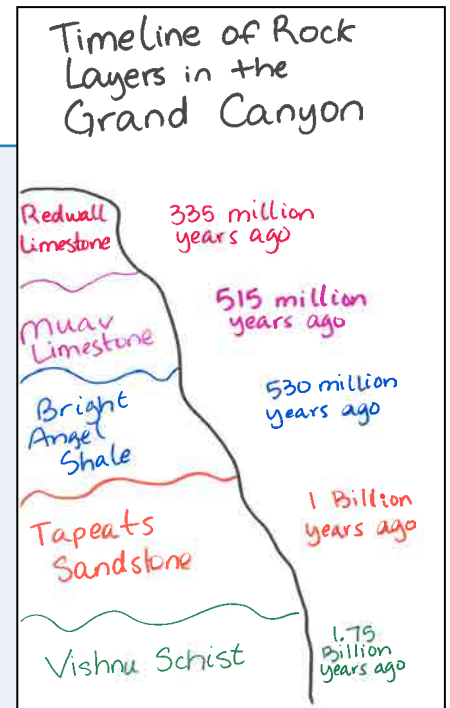 Timeline of Rock
Layers in the
Grand Canyon
Redwall
Limestone
335 million
years ago
Muav
Limestone
515 million
years ago
Bright
Angel
Shale
530 million
years ago
Tapeats
Sandstone
1 Billion
years ago
Vishnu Schist
1.75
Billion
years ago